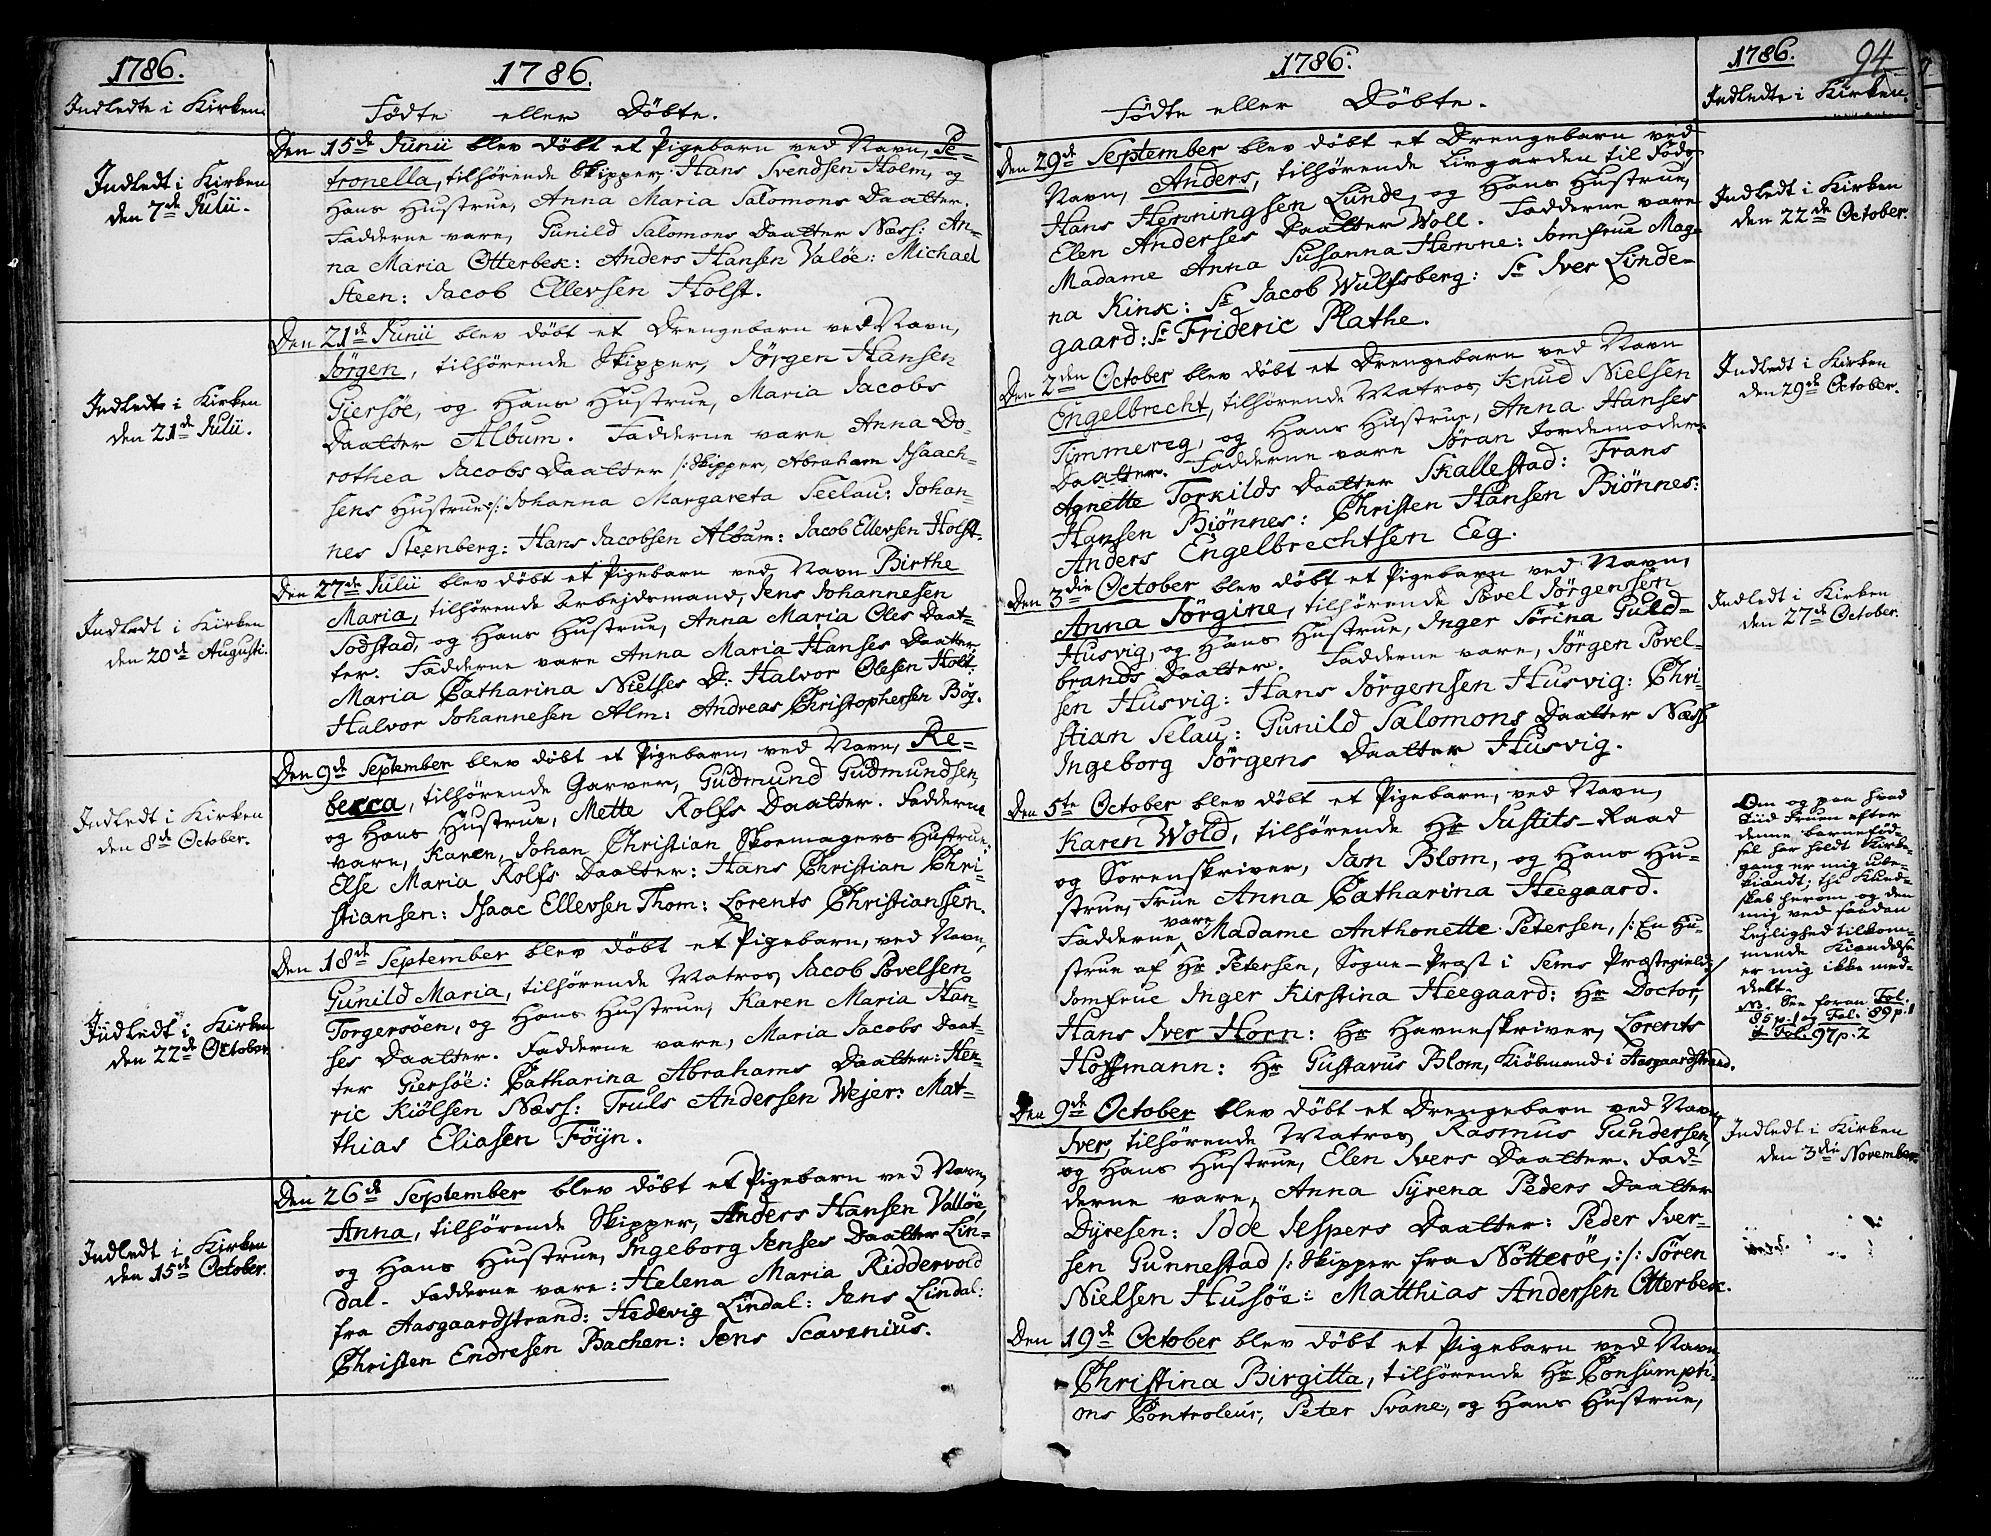 1786.
Indledte i Kirken.
1786.
Födte eller Döbte.
Indledt i Kirken
den 7de Julii.
Den 15de Junii blev döbt et Pigebarn ved Navn, Pe-
tronella, tilhörende Skipper, Hans Svendsen Holm, og
Hans Hustrue, Anna Maria Salomons Daatter.
Fadderne vare, Gunild Salomons Daatter Næss: An-
na Maria Otterbek: Anders Hansen Valöe: Michael
Steen: Jacob Ellevsen Holst.
Indledt i Kirken
den 21de Julii.
Den 21de Junii blev döbt et Drengebarn ved Navn,
Jörgen, tilhörende Skipper, Jörgen Hansen
Giersöe, og Hans Hustrue, Maria Jacobs
Daatter Album. Fadderne vare Anna Do-
rothea Jacobs Daatter /: Skipper, Abraham Isaach-
sens Hustrue :/: Johanna Margareta Seelau: Johan-
nes Steenberg: Hans Jacobsen Album: Jacob Ellevsen Holst.
Indledt i Kirken
den 20de Augusti.
Den 27de Julii blev döbt et Pigebarn ved Navn Birthe
Maria, tilhörende Arbejdsmand, Jens Johannesen
Sodstad, og Hans Hustrue, Anna Maria Oles Daat-
ter. Fadderne vare Anna Maria Hanses Daatter
Maria Catharina Nielses D: Halvor Olesen Holt:
Halvor Johannesen Alm: Andreas Christophersen Bög.
Indledt i Kirken
den 8de October.
Den 9de September blev döbt et Pigebarn, ved Navn, Re-
becca, tilhörende Garver, Gudmund Gudmundsen,
og Hans Hustrue, Mette Rolfs Daatter. Fadderne
vare, Karen, Johan Christian Skoemagers Hustrue:
Else Maria Rolfs Daatter: Hans Christian Chri-
stiansen: Isaac Ellevsen Thom: Lorents Christianssen.
Indledt i Kirken
den 22de October
Den 18de September blev döbt et Pigebarn, ved Navn,
Gunild Maria, tilhörende Matros, Jacob Povelsen
Torgersöen, og Hans Hustrue, Karen Maria Han-
ses Daatter. Fadderne vare, Maria Jacobs Daat-
ter Giersöe: Catharina Abrahams Daatter: Hen-
ric Kiölsen Næss: Truls Andersen Wejer: Mat-
thias Eliasen Föyn.
Indledt i Kirken
den 15de October.
Den 26de September blev döbt et Pigebarn ved Navn
Anna, tilhörende Skipper, Anders Hansen Vallöe,
og Hans Hustrue, Ingeborg Jenses Daatter Lin-
dal. Fadderne vare: Helena Maria Riddervold
fra Aasgaardstrand: Hedevig Lindal: Jens Lindal:
Christen Endresen Bachen: Jens Scavenius.
1786:
Födte eller Döbte.
1786.
94
Indledte i Kirken.
Den 29de September blev döbt et Drengebarn ved
Navn, Anders, tilhörende Livgarden til Fods
Hans Henningsen Lunde, og Hans Hustrue,
Elen Anderses Daatter Voll. Fadderne vare
Madame Anna Susanna Henne: Jomfrue Mag-
na Kink: Sr Jacob Wulfsberg: Sr Iver Linde-
gaard: Sr Frideric Plathe.
Indledt i Kirken
den 22de October.
Den 2den October blev döbt et Drengebarn ved Navn
Engelbrecht, tilhörende Matros Knud Nielsen
Timmereg, og Hans Hustrue, Anna Hanses
Daatter. Fadderne vare Söran Jordemoder:
Agnette Torkilds Daatter Skallestad: Frans
Hansen Biönnes: Christen Hansen Biönnes:
Anders Engelbrechtsen Eeg.
Indledt i Kirken
den 29de October.
Den 3die October blev döbt et Pigebarn ved Navn,
Anna Jörgine, tilhörende Povel Jörgensen
Husvig, og Hans Hustrue, Inger Sörina Guld-
brands Daatter. Fadderne vare, Jörgen Povel-
sen Husvig: Hans Jörgensen Husvig: Chri-
stian Selau: Gunild Salomons Daatter Næss:
Ingeborg Jörgens Daatter Husvig.
Indledt i Kirken
den 27de October.
Den 5te October blev döbt et Pigebarn, ved Navn,
Karen Wold, tilhörende Hr Justits-Raad
og Sorenskriver, Jan Blom, og Hans Hu-
strue, Frue Anna Catharina Heegaard.
Fadderne vare Madame Anthonette Petersen, /: En Hu-
strue af Hr Petersen, Sogne-Præst i Sems Præstegield:/
Jomfrue Inger Kirstina Heegaard: Hr Doctor,
Hans Iver Horn: Hr Havneskriver, Lorents
Hoffmann: Hr Gustavus Blom, Kiöbmand i Aasgaardstrand.
Om og paa hvad
Tiid Fruen efter
denne barnefød-
sel har holdt Kirke-
gang er mig ube-
kiendt; thi Kund-
skab herom og den
mig ved saadan
Lejlighed tilkom-
mende Kiendelse
er mig ikke med-
delt.
NB. See foran Fol.
85 p.1 og Fol. 89 p.1
& Fol. 97 p. 2
Den 9de October blev döbt et Drengebarn ved Navn
Iver, tilhörende Matros, Rasmus Gundersen,
og Hans Hustrue, Elen Ivers Daatter. Fad-
derne vare, Anna Syrena Peders Daatter
Dyresen: Idde Jespers Daatter: Peder Iver-
sen Gunnestad /: Skipper fra Nötteröe, :/: Sören
Nielsen Husöe: Matthias Andersen Otterbek.
Indledt i Kirken
den 3die November.
Den 19de October blev döbt et Pigebarn ved Navn
Christina Birgitta, tilhörende Hr Consumpti-
ons Controleur, Peter Svane, og Hans Hustrue,